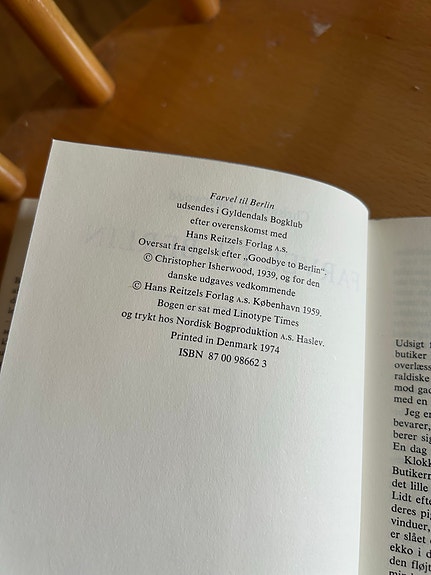 Farvel til Berlin
udsendes i Gyldendals Bogklub
efter overenskomst med
Hans Reitzels Forlag A.S.
Oversat fra engelsk efter „Goodbye to Berlin“.
© Christopher Isherwood, 1939, og for den
danske udgaves vedkommende
© Hans Reitzels Forlag A.S. København 1959.
Bogen er sat med Linotype Times
og trykt hos Nordisk Bogproduktion A.S. Haslev.
Printed in Denmark 1974
ISBN 87 00 98662 3
Udsigt
butiker
overlæss
raldiske
mod gad
med en
Jeg er
bevarer,
berer sig
En dag
Klokk
Butikern
det lille
Lidt efte
deres pig
vinduer,
er slået
ekko i d
den fløjt